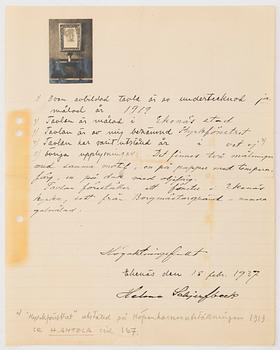 1) Ovan avbildad tavla är av undertecknad ja
målad år 1919
2) Tavlan är målad i Ekenäs stad
3) Tavlan är av mig benämnd Kyrkfönstret
4) Tavlan har varit utställd år i vet ej
5) övriga upplysningar. Det finnes två målningar
med samma motiv, en på papper med tempera
färg, en på duk med oljefärg.
Tavlan föreställer ett fönster i Ekenäs
kyrka, sett från Borgmästaregränd
Högaktningsfullt
Ekenäs den 15 febr. 1937
Helene Schjerfbeck
"Kyrkfönstret" utställd på Köpenhamnsutställningen 1919
H. AHTOLA 167.